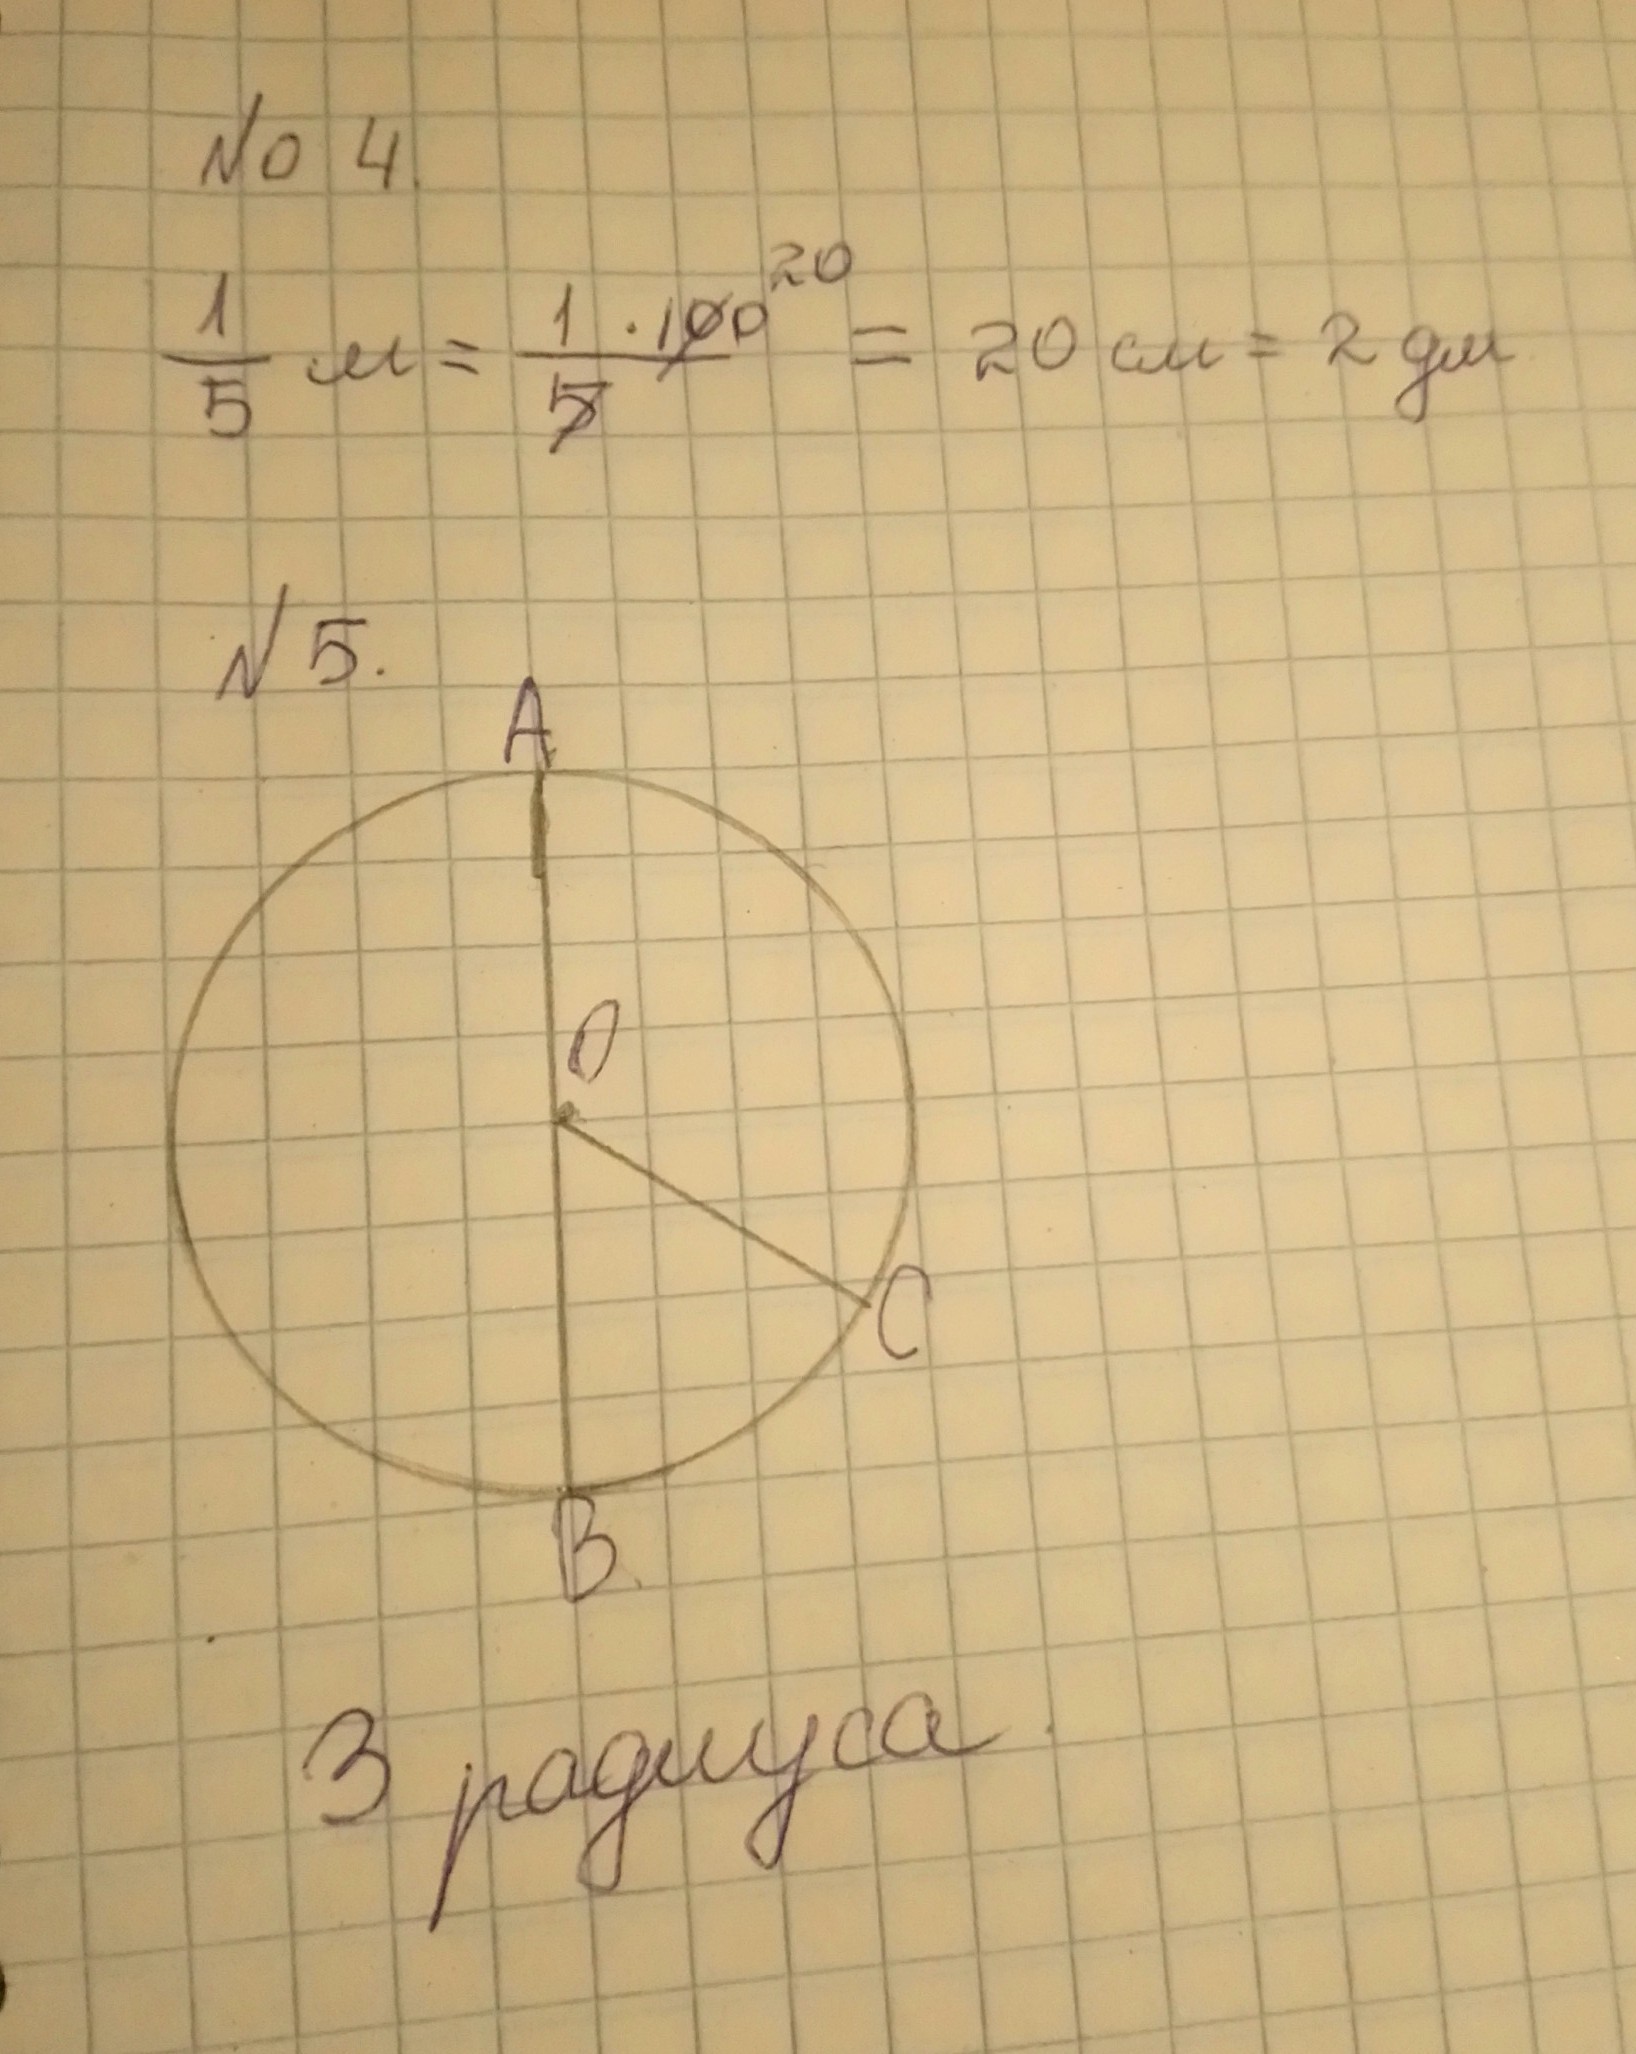 No 4.
1/5 м = 1 · 100/5 20 = 20 см = 2 дм
N 5.
A
O
C
B
3 радиуса